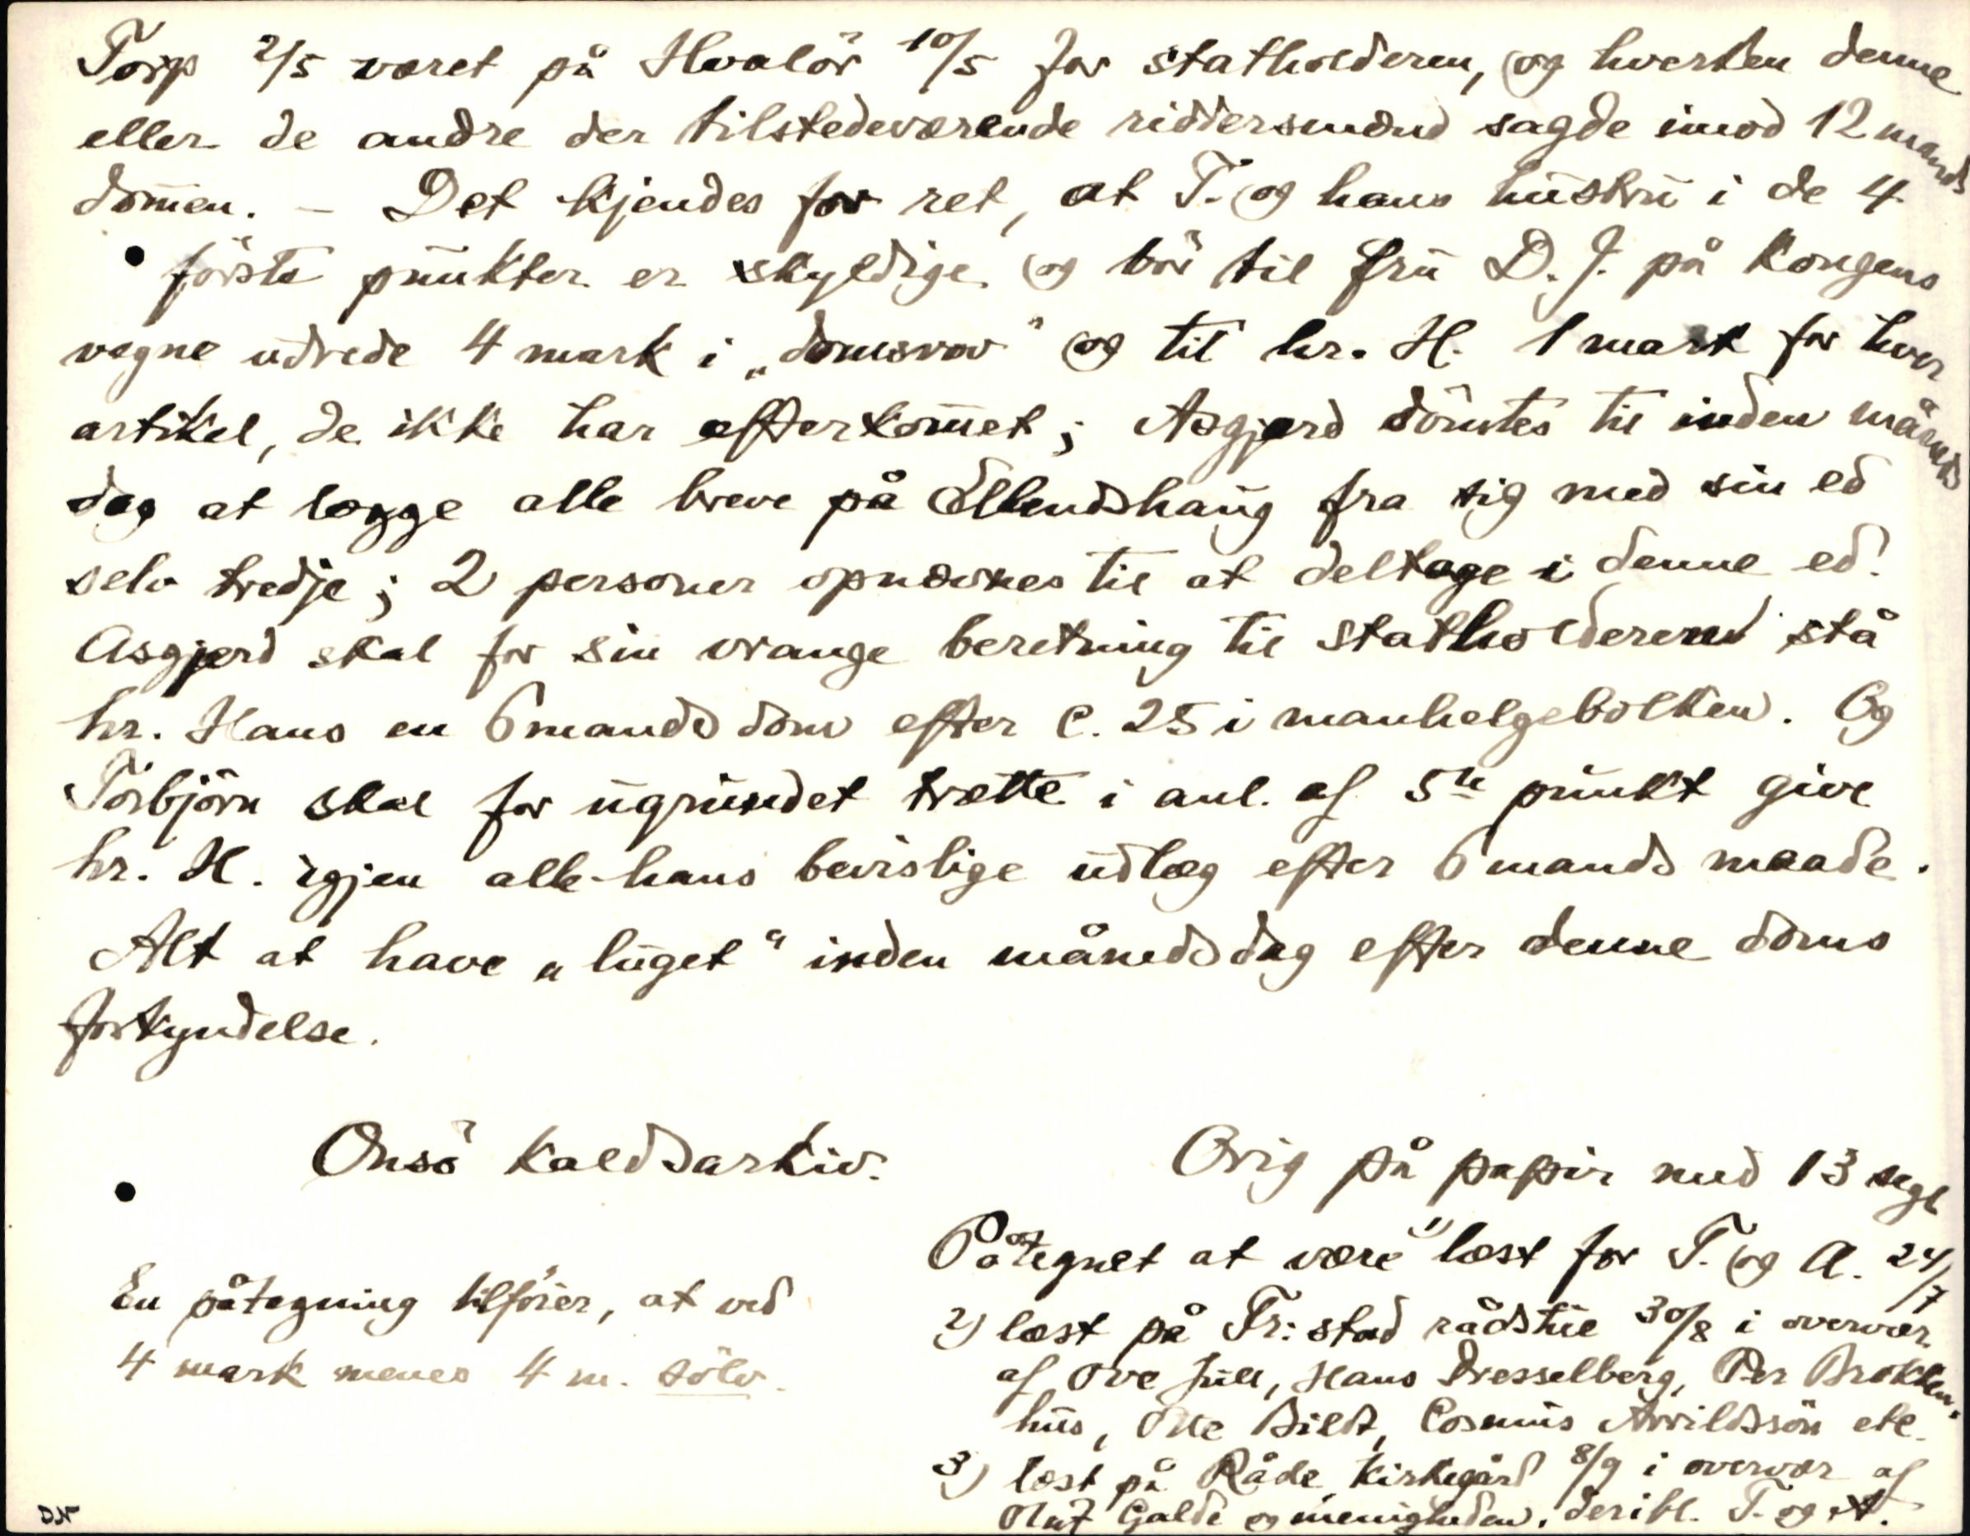 Torp 2/5 været på Hvalör 10/5 for statholderen, og hverken denne
eller de andre der tilstedeværende riddersmænd sagde imod 12 mands
dom̄en. – Det kjendes for ret, at T. og hans hustru i de 4
förste punkter er skyldige og bör til fru D. J. på Kongens
vegne udrede 4 mark i „domsrov" og til hr. H. 1 mark for hver
artikel, de ikke har efterkom̄et; Asgjerd dömtes til inden måneds
dag at lægge alle breve på Ellendshaug fra sig med sin ed
selv tredje; 2 personer opnævnes til at deltage i denne ed.
Asgjerd skal for sin vrange beretning til statholderen stå
hr. Hans en 6 mands dom efter c. 25 i manhelgebolken. Og
Torbjörn skal for ugrundet trætte i anl. af 5te punkt give
hr. H. igjen alle hans bevislige udlæg efter 6 mands maade.
Alt at have „luget" inden månedsdag efter denne doms
forkyndelse.
Onsö Kaldsarkiv.
Orig på papir med 13 segl
Påtegnet at være 1) læst for T. og A. 24/7
2) læst på Fr:stad rådstue 30/8 i overvær
af Ove Juel, Hans Dresselberg, Per Brokken-
hus, Otte Bildt, Cosmus Arvildssön etc.
3) læst på Råde Kirkegård 8/9 i overvær af
Oluf Galde og menigheden, deribl. T. og A.
En påtegning tilföier, at ved
4 mark menes 4 m. sölv.
DN